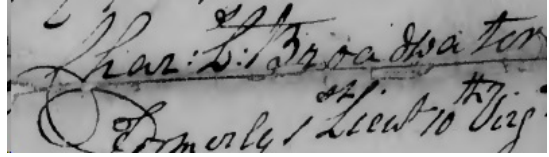 Char: L: Broadwater
Formerly 1st Lieut 10th Virg